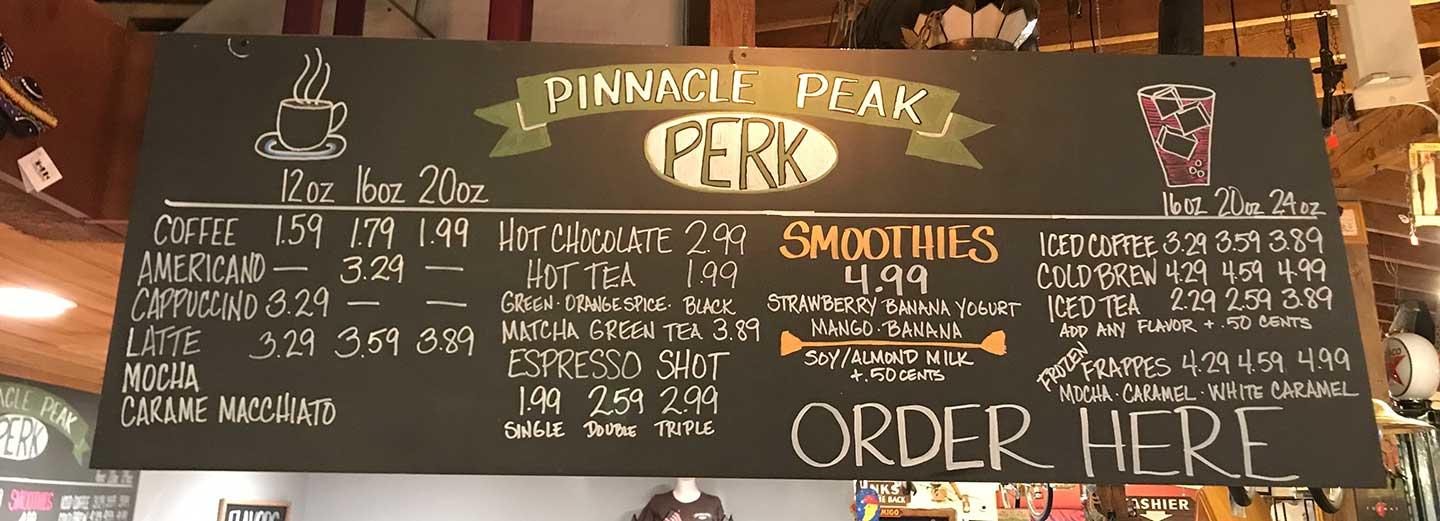 PINNACLE PEAK
PERK
12oz 16oz 20oz
COFFEE 1.59 1.79 1.99
AMERICANO — 3.29 —
CAPPUCCINO 3.29 — —
LATTE 3.29 3.59 3.89
MOCHA
CARAME MACCHIATO
HOT CHOCOLATE 2.99
HOT TEA 1.99
GREEN · ORANGE SPICE · BLACK
MATCHA GREEN TEA 3.89
ESPRESSO SHOT
1.99 2.59 2.99
SINGLE DOUBLE TRIPLE
SMOOTHIES
4.99
STRAWBERRY BANANA YOGURT
MANGO · BANANA
SOY/ALMOND MILK
+.50 CENTS
16oz 20oz 24oz
ICED COFFEE 3.29 3.59 3.89
COLD BREW 4.29 4.59 4.99
ICED TEA 2.29 2.59 3.89
ADD ANY FLAVOR + .50 CENTS
FROZEN FRAPPES 4.29 4.59 4.99
MOCHA · CARAMEL · WHITE CARAMEL
ORDER HERE
PEAK
PERK
SMOOTHIES
FLAVORS